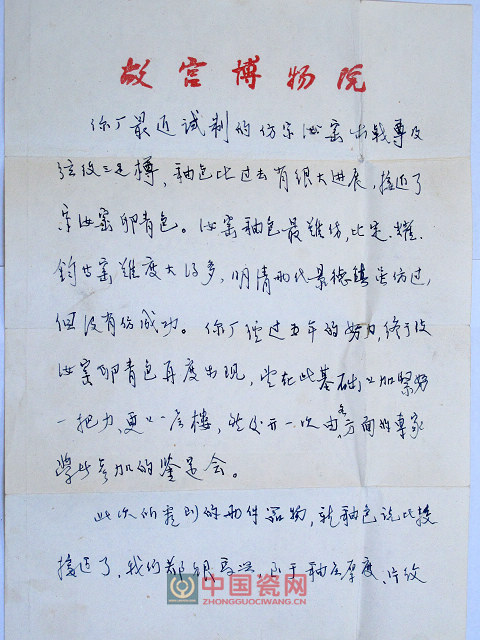 故宫博物院
你厂最近试制的仿宋汝窑出戟尊及
弦纹三足樽，釉色比过去有很大进展，接近了
宋汝窑卵青色。汝窑釉色最难仿，比定、耀、
钧官窑难度大得多，明清两代景德镇虽仿过，
但没有仿成功。你厂经过五年的努力，终于使
汝窑卵青色再度出现，望在此基础上加紧努
一把力，更上一层楼，然后开一次由各方面的专家
学者参加的鉴定会。
此次所看到的两件器物，就釉色说比较
接近了，我们都很高兴，至于釉层厚度、片纹
中国瓷网
ZHONGGUOCIWANG.CN